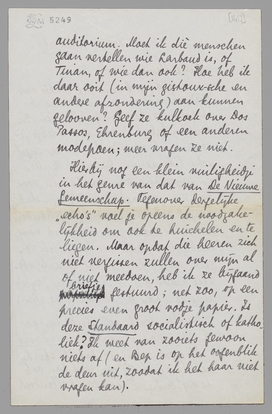 5249
auditorium. Moet ik die menschen
gaan vertellen wie Larbaud is, of
Tinan, of wie dan ook? Hoe heb ik
daar ooit (in mijn
andere afzondering) aan kunnen
gelooven? Geef ze kulkoek over Dos
Passos, Ehrenburg of een anderen
modepaon; meer vragen ze niet.
Hierbij nog een klein vuiligheidje
in het genre van dat van De Nieuwe
Gemeenschap. Tegenover dergelijke
"echo's" voel je opeens de noodzake-
lijkheid om ook te huichelen en te
liegen. Maar opdat die heeren zich
niet vergissen zullen over mijn al
of niet meedoen, heb ik ze bijgaand
briefje
gestuurd; net zoo, op een
precies even groot vodje papier. Is
deze Standaard socialistisch of katho-
liek? Ik weet van zooiets gewoon
niets af (en Bep is op het oogenblik
de deur uit, zoodat ik het haar niet
vragen kan).